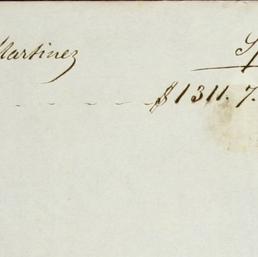 Martinez
$1311.7.